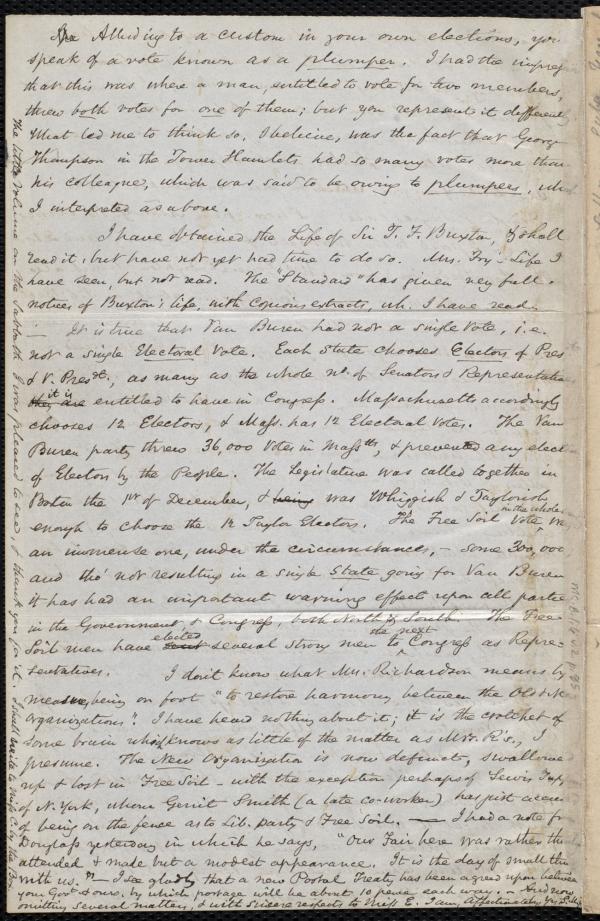 Alluding to a custom in your own elections, you
speak of a vote known as a plumper. I had the impres
that this was where a man, entitled to vote for two members,
threw both votes for one of them; but you represent it differently
What led me to think so, I believe, was the fact that George
Thompson in the Tower Hamlets had so many votes more than
his colleague, which was said to be owing to plumpers, wh
I interpreted as above.
I have obtained the Life of Sir T. F. Buxton, & shall
read it, but have not yet had time to do so. Mrs. Fry's Life I
have seen, but not read. The "Standard" has given very full
notices of Buxton's life, with copious extracts, wh. I have read.
— It is true that Van Buren had not a single vote, i.e.
not a single Electoral vote. Each State chooses Electors of Pres
& V. Presdt., as many as the whole no. of Senators & Representative
they are it is entitled to have in Congress. Massachusetts accordingly
chooses 12 Electors, & Mass. has 12 Electoral votes. The Van
Buren party threw 36,000 votes in Masstts, & prevented any elect
of Electors by the People. The Legislature was called together in
Boston the 1st of December, & being was Whiggish & Taylorish
enough to choose the 12 Taylor Electors. The Free Soil vote, in the whole, wa
an immense one, under the circumstances, – some 300,000
and tho' not resulting in a single State going for Van Buren
it has had an important warning effect upon all partie
in the Government & Congress, both North & South. The Free
Soil men have sent elected several strong men to the next Congress as Repre-
sentatives. I don't know what Mrs. Richardson means by
measures being on foot "to restore harmony between the Old & N
organizations". I have heard nothing about it; it is the crotchet of
some brain wh. knows as little of the matter as Mrs. R's., I
presume. The New Organization is now defunct, swallowed
up & lost in Free Soil – with the exception perhaps of Lewis Tap
of N. York, whom Gerrit Smith (a late co-worker) has just accus
of being on the fence as to Lib. party & Free Soil. — I had a note fr
Douglass yesterday in which he says, "Our Fair here was rather thi
attended & made but a modest appearance. It is the day of small thin
with us." — I see gladly that a new Postal Treaty has been agreed upon between
your Govt. & ours, by which postage will be about 10 pence each way. – And now
omitting several matters, & with sincere respects to Miss E. I am, affectionately, yrs. S. May
The little volume on the Sabbath I was pleased to see, & thank you for it. I shall write to Miss C. by the Box